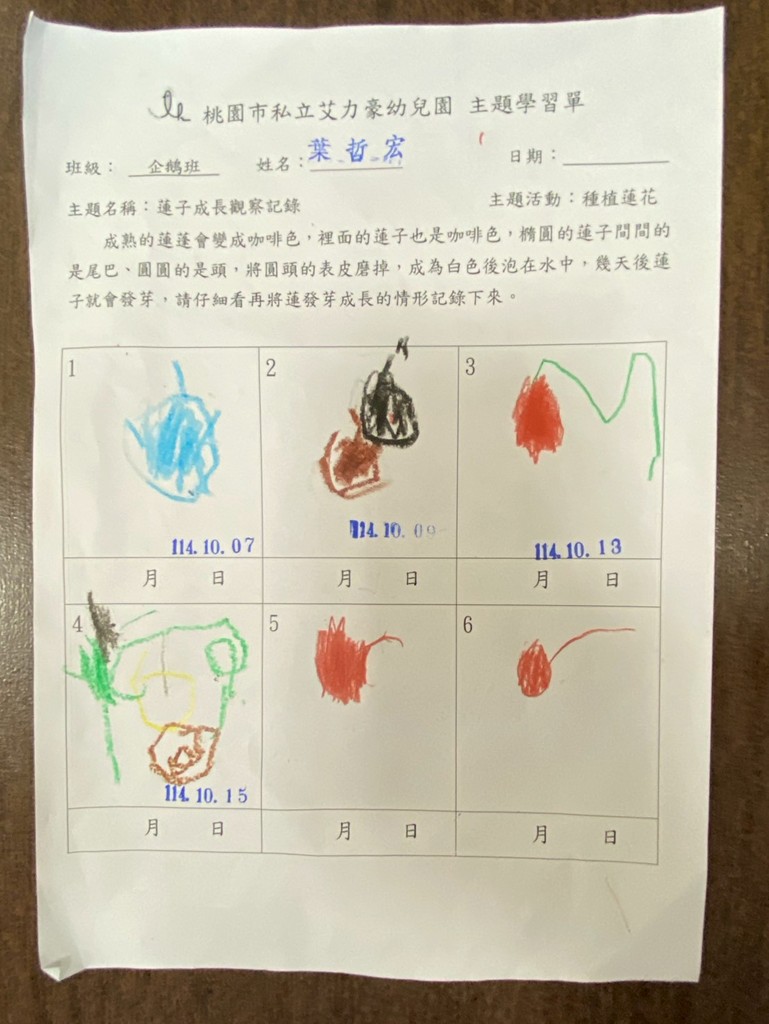 桃園市私立艾力豪幼兒園 主題學習單
班級：企鵝班 姓名：葉哲宏 日期：
主題名稱：蓮子成長觀察記錄 主題活動：種植蓮花
成熟的蓮蓬會變成咖啡色，裡面的蓮子也是咖啡色，橢圓的蓮子間間的
是尾巴、圓圓的是頭，將圓頭的表皮磨掉，成為白色後泡在水中，幾天後蓮
子就會發芽，請仔細看再將蓮發芽成長的情形記錄下來。
1 2 3
114.10.07 114.10.09 114.10.13
月 日 月 日 月 日
4 5 6
114.10.15
月 日 月 日 月 日